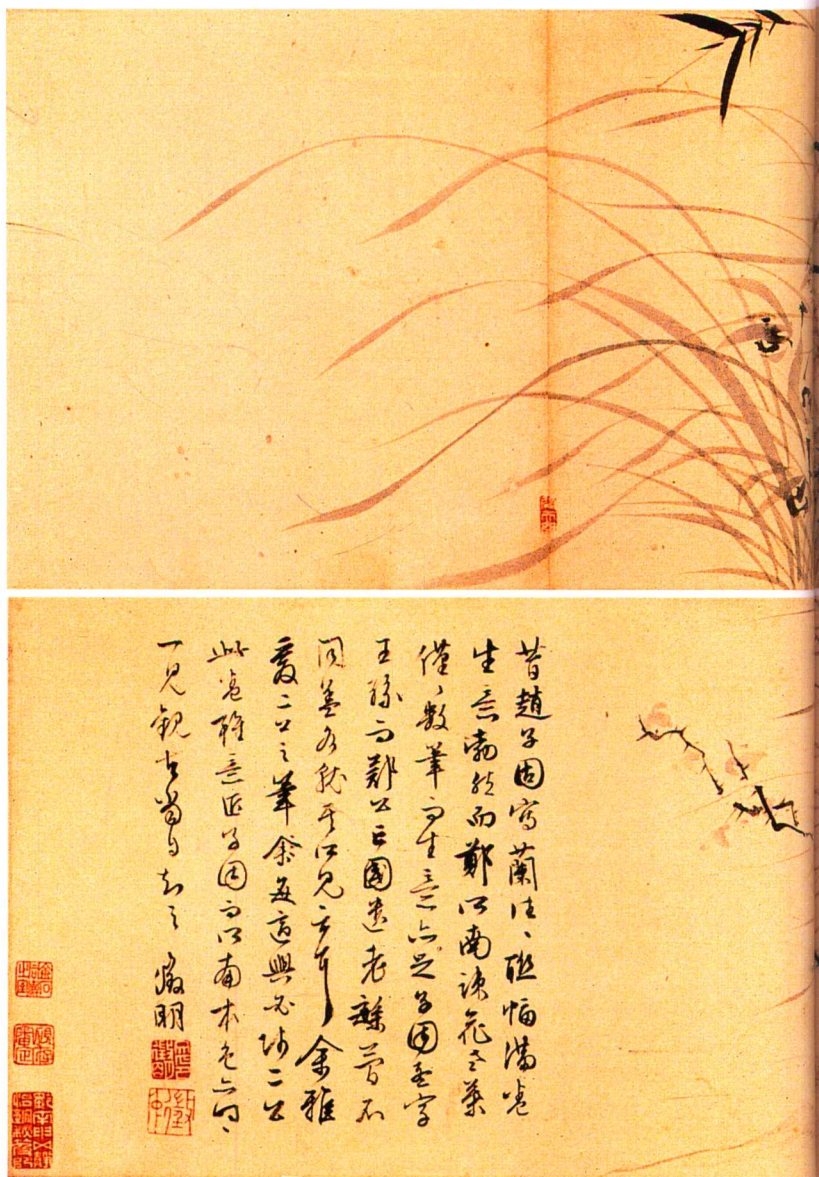 昔趙子固寫蘭往、聯幅滿卷
生意勃然而鄭所南疎花老葉
僅、數筆而生意亦足子固
王孫而鄭公亡國遺老繁簡不
同蓋各就其所見云耳余雅
愛二公之筆余每適興必師二公
此卷雖意匠子固而所南本色亦時、
一見觀者當自知之 徵明